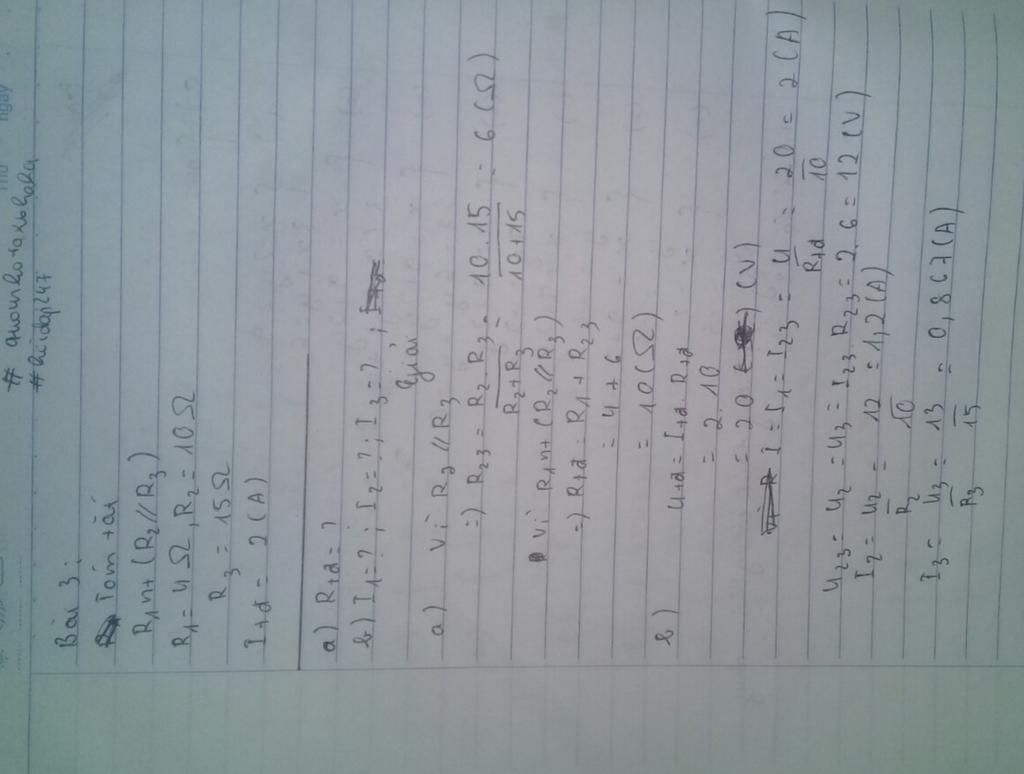 # аноико+альвова
Bài 3:
Tóm tắt
R₁ nt (R₂ // R₃)
R₁ = 4 Ω, R₂ = 10 Ω
R₃ = 15 Ω
Itđ = 2 (A)
a) Rtđ = ?
b) I₁ = ?; I₂ = ?; I₃ = ?;
Giải
a) Vì R₂ // R₃
=) R₂₃ = R₂ . R₃ / R₂ + R₃ = 10 . 15 / 10 + 15 = 6 (Ω)
Vì R₁ nt (R₂ // R₃)
=) Rtđ = R₁ + R₂₃
= 4 + 6
= 10 (Ω)
b) Utđ = Itđ . Rtđ
= 2 . 10
= 20 (V)
I = I₁ = I₂₃ = U / Rtđ = 20 / 10 = 2 (A)
U₂₃ = U₂ = U₃ = I₂₃ . R₂₃ = 2 . 6 = 12 (V)
I₂ = U₂ / R₂ = 12 / 10 = 1,2 (A)
I₃ = U₃ / R₃ = 13 / 15 = 0,867 (A)